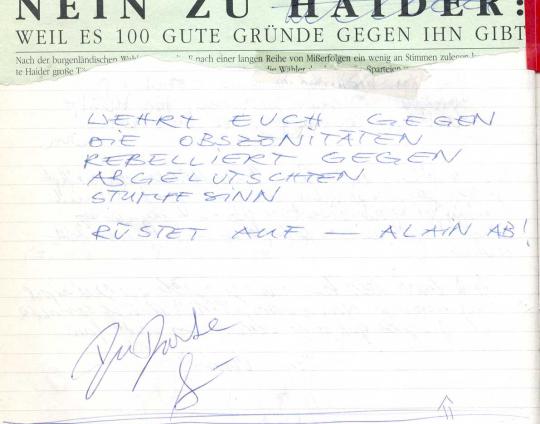 NEIN ZU HAIDER:
WEIL ES 100 GUTE GRÜNDE GEGEN IHN GIBT
Nach der burgenländischen nach einer langen Reihe von Mißerfolgen ein wenig an Stimmen zulegen
te Haider große die Wähler
WEHRT EUCH GEGEN
DIE OBSZÖNITÄTEN
REBELLIERT GEGEN
ABGELUTSCHTEN
STUMPFSINN
RÜSTET AUF — ALAIN AB!